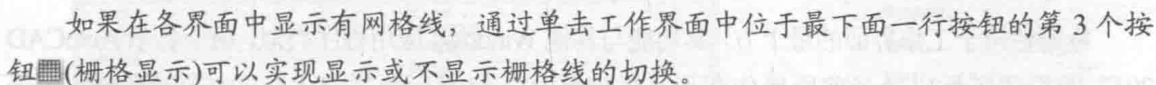 如果在各界面中显示有网格线，通过单击工作界面中位于最下面一行按钮的第 3 个按
钮▦(栅格显示)可以实现显示或不显示栅格线的切换。